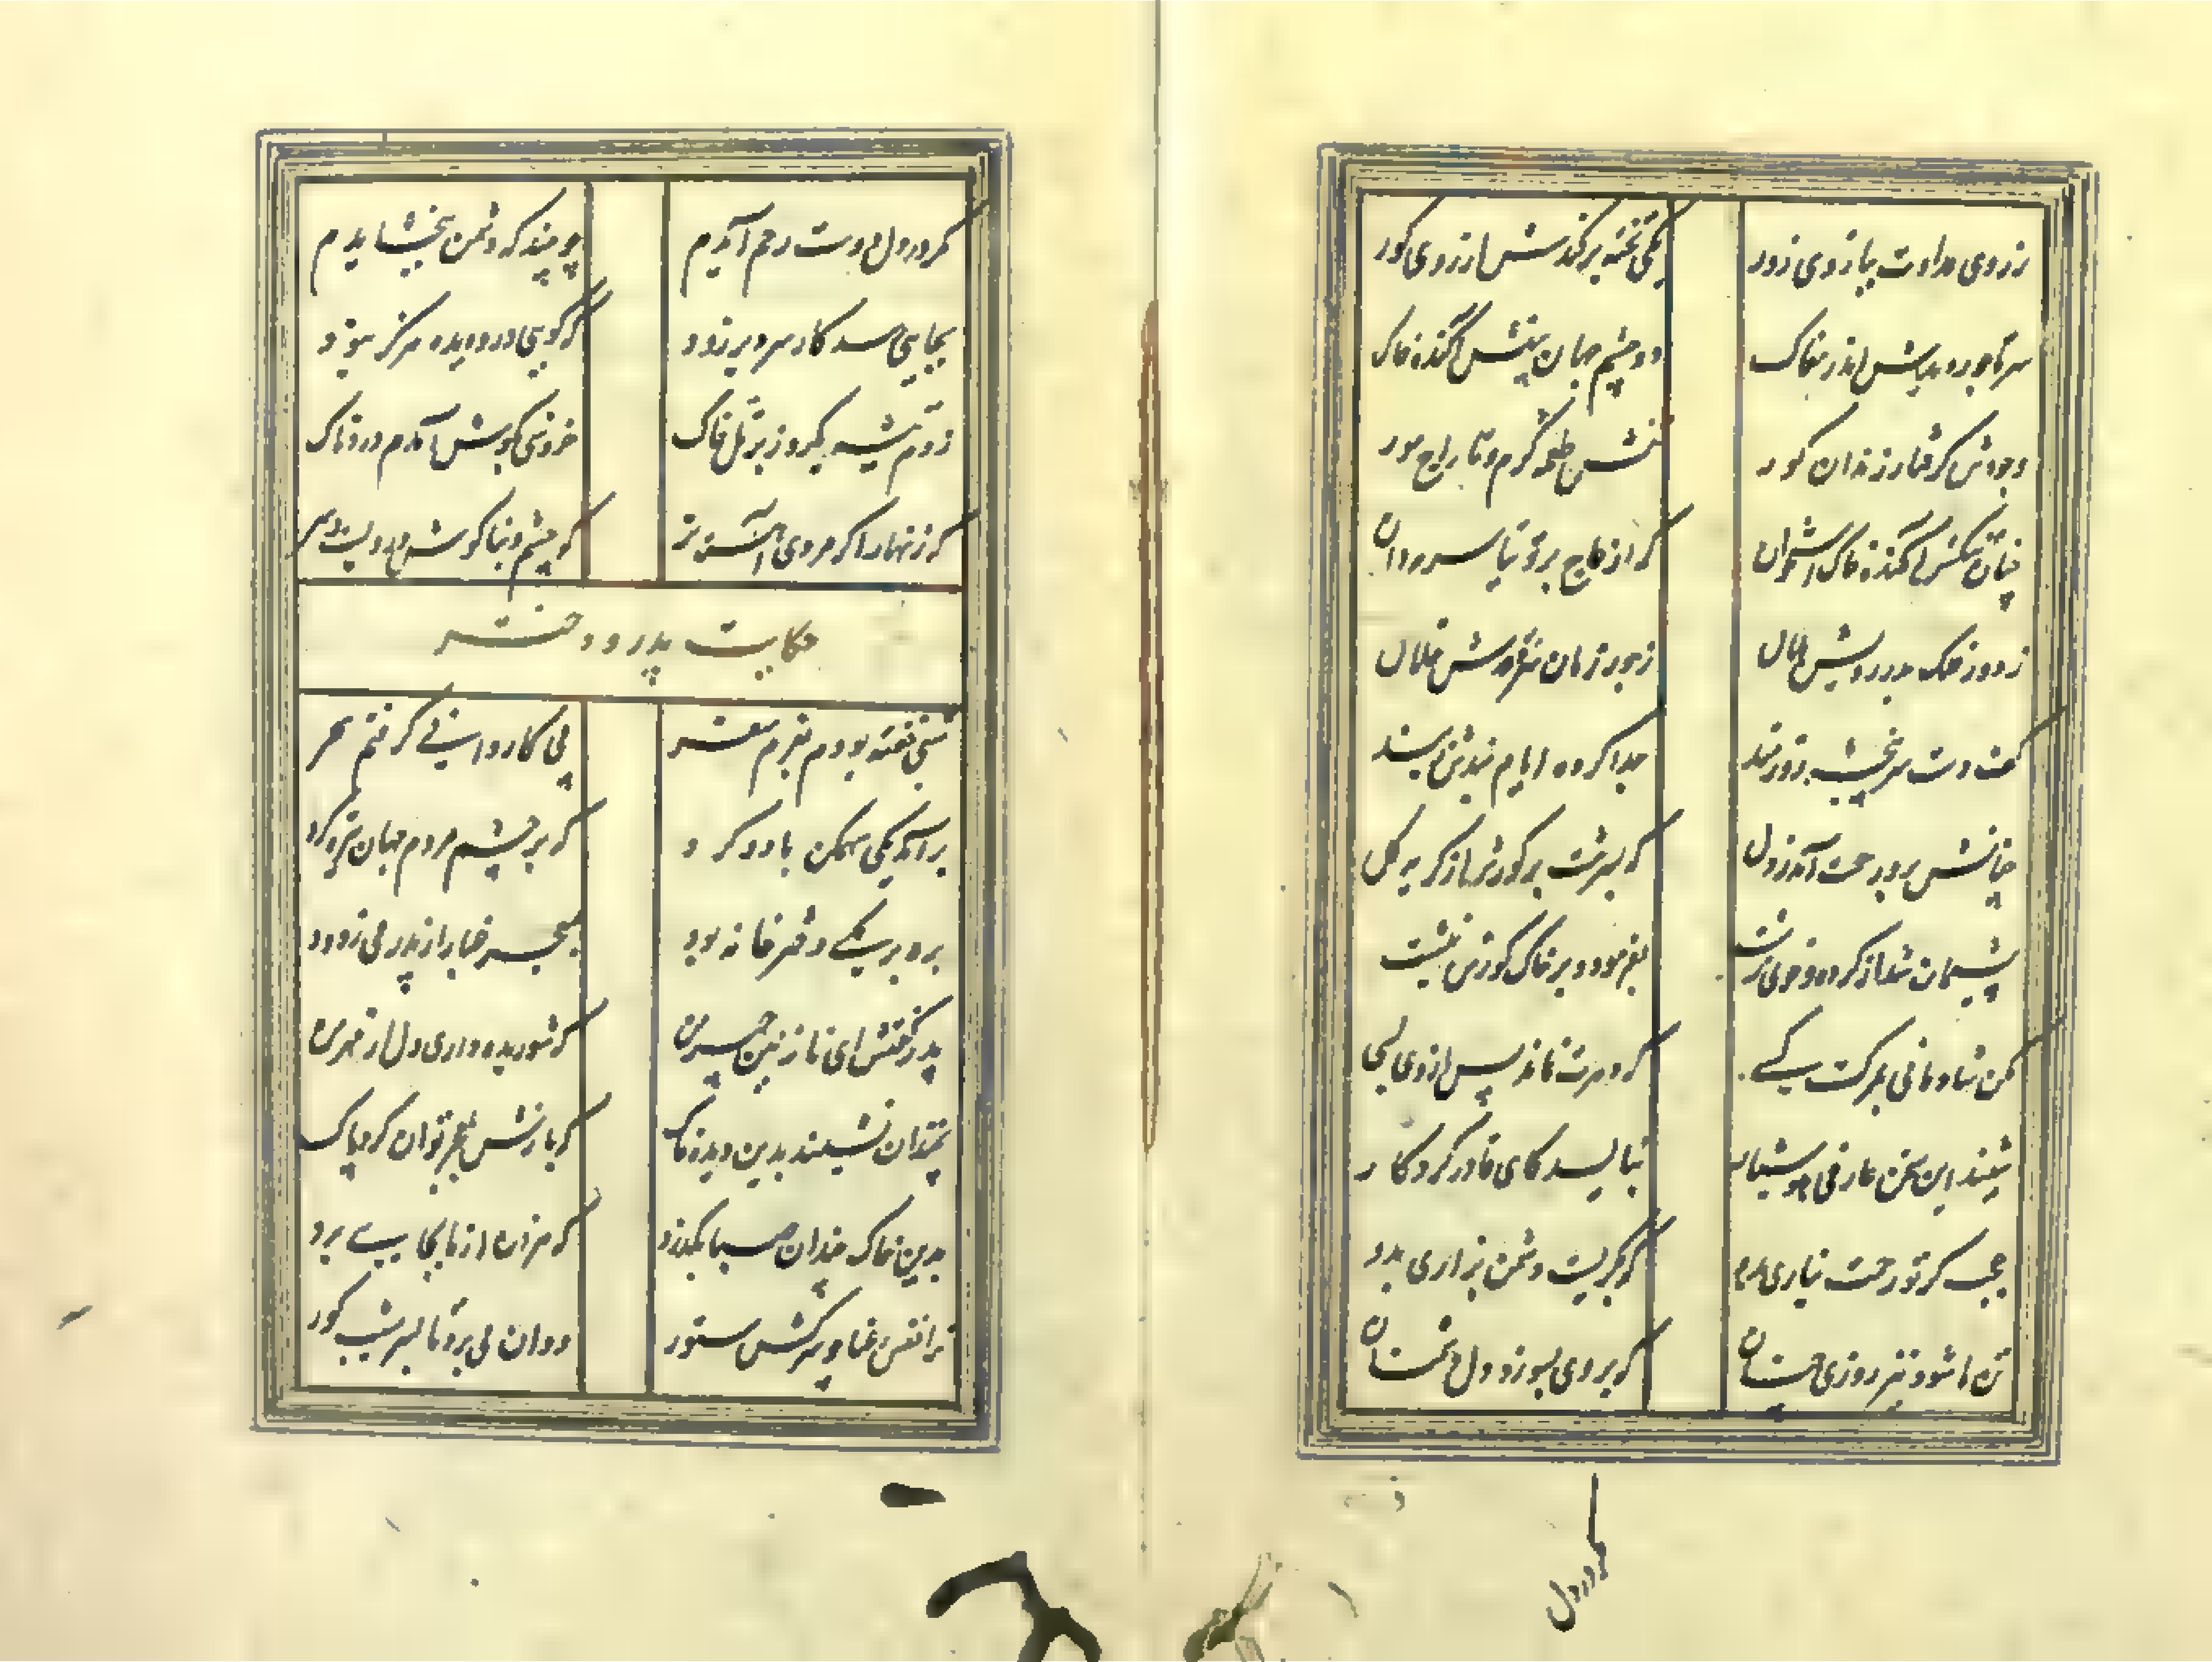 ز روی عداوت ببازوی زور یکی تخته برکندش از روی کور
سر تاجور دیدش اندر مغاک دو چشم جهان بینش آکنده خاک
وجودش کرفتار زندان کور تنش طعمه کرم و تاراج مور
چنان تنکش آکنده خاک استخوان که از عاج پر توتیا سرمه دان
ز دور فلک بدر رویش هلال ز جور زمان سرو قدش خلال
کف دست و سرپنجه زورمند جدا کرده ایام بندش ز بند
چنانش برو رحمت آمد ز دل که بسرشت بر کورش از کریه کل
پشیمان شد از کرده و خوی زشت بفرمود و بر خاک کورش نبشت
مکن شادمانی بمرک کسے که دهرت نماند پس از وی بسی
شنید این سخن عارفی هوشیار بنالید کای قادر کردکار
عجب کر تو رحمت نیاری برو که بکریست دشمن بزاری برو
تن ما شود نیز روزی چنان که بر وی بسوزد دل دشمنان
مکر در دل
مکر در دل دوست رحم آیدم چو بیند که دشمن ببخشایدم
بجایی رسد کار سر دیر و زود که کویی درو دیده هرکز نبود
زدم تیشه یکروز بر تل خاک خروشی بکوش آمدم دردناک
که زنهار اکر مردی آهسته تر که چشم و بناکوش و رویست و سر
حکایت پدر و دختر
شبی خفته بودم بعزم سفر پی کاروانے کرفتم سحر
برآمد یکی سهمکن باد و کرد که بر چشم مردم جهان تیره کرد
بره بر یکے دختر خانه بود بمعجر غبار از پدر می زدود
پدر کفتش ای نازنین چهر من که شوریده داری دل از مهر من
نچندان نشیند بدین دیده خاک که بازش بمعجر توان کرد پاک
بدین خاک چندان صبا بکذرد که هر ذره از ما بجایے برد
ترا نفس رعنا چو سرکش ستور دوان می برد تا بسر شیب کور